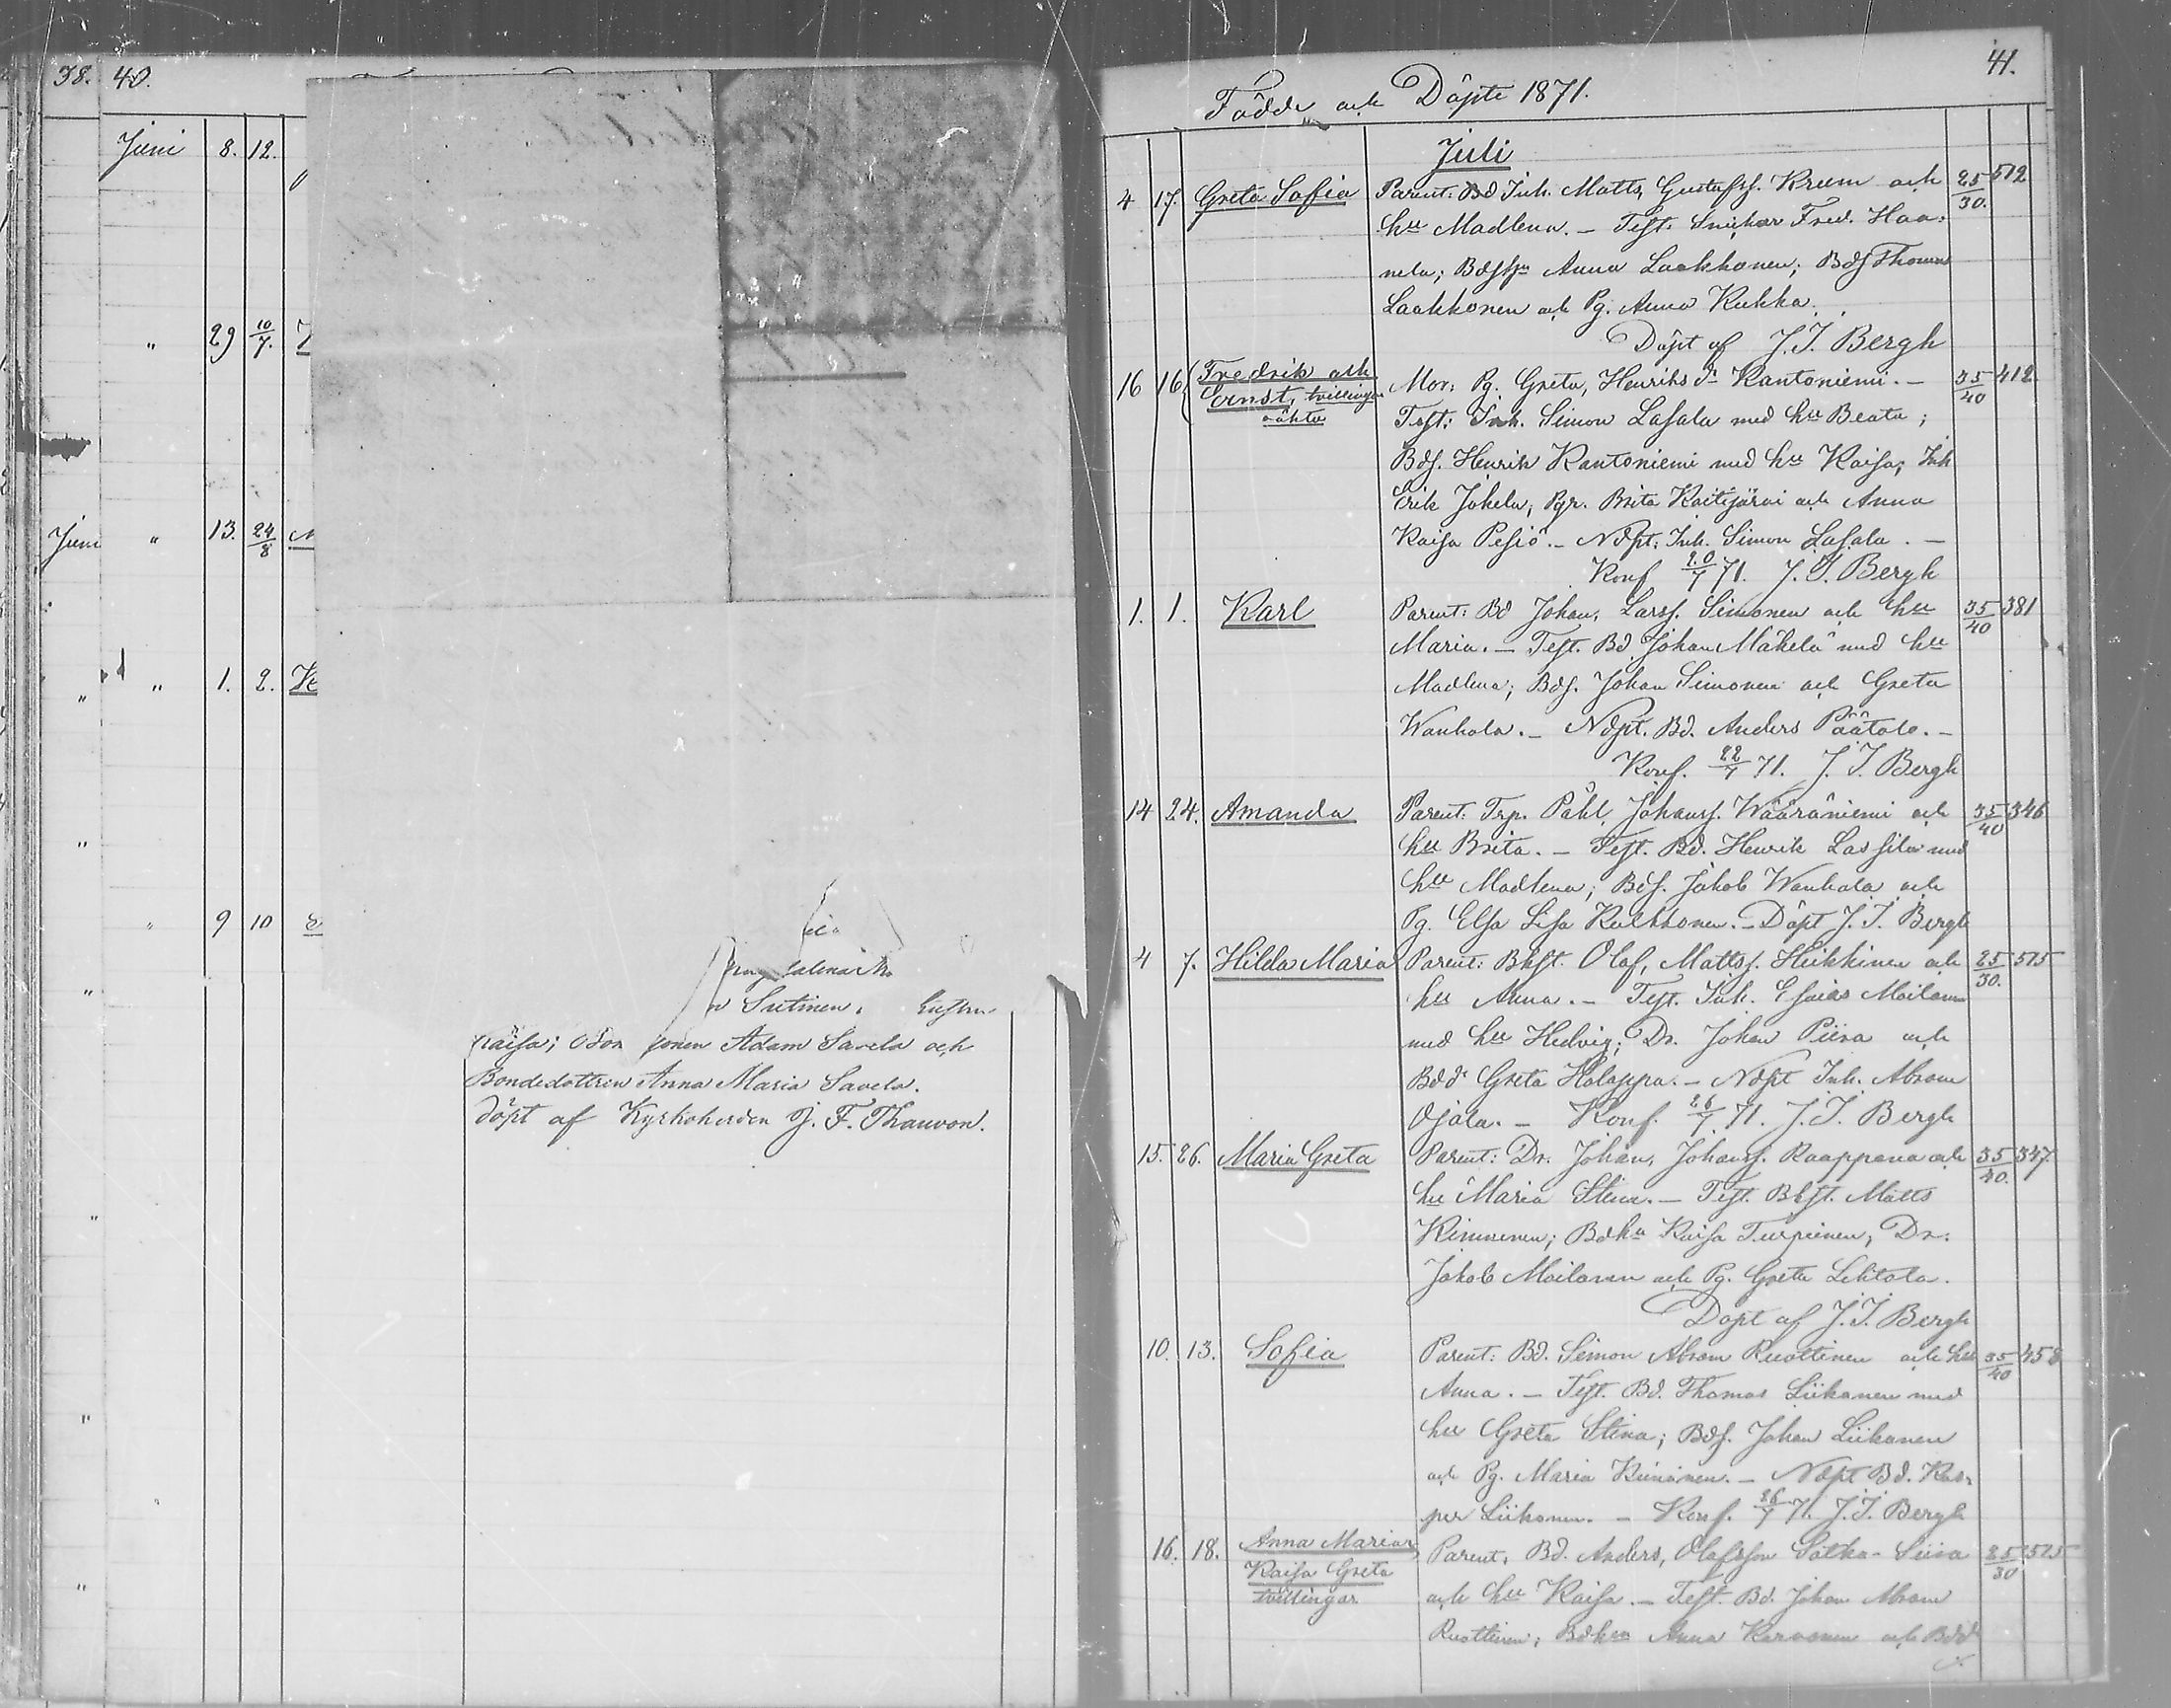 38. 40.
Juni 8. 12.
" 29 10/7.
Juni " 13. 24/8
" " 1. 2.
"
" 9 10
"
Sutinen.
Kaisa; Adam Savela och
Bondedottren Anna Maria Savela.
döpt af Kyrkoherden J. F. Thauvon.
"
"
"
41.
Födde och Döpte 1871.
Juli
4 17. Greta Sofia Parent: Bd Inh. Matts, Gustafss. Krum och 25/30. 512
hu Madlena. – Test. Snickar Fred. Haa-
nela; Anna Laakkonen; Bds Thomas
Laakkonen och Pg. Anna Kukka.
Döpt af J. I. Bergh
16 16 Fredrik och Mor: Pg. Greta, Henriks dr Kantoniemi. – 35/40 412
Ernst, tvillingar Test: Inh. Simon Lasala med hu Beata;
oäkta
Bds. Henrik Kantoniemi med hu Kaisa; Inh
Erik Jokela, Pgr. Brita Kaitijärvi och Anna
Kaisa Pesiö. – Ndpt: Inh. Simon Lasala. –
Konf 20/7 71. J. I. Bergh
1. 1. Karl Parent: Bd Johan, Larss. Simonen och hu 35/40 381
Maria. – Test. Bd Johan Mäkelä med hu
Madlena; Bds. Johan Simonen och Greta
Wanhala. – Ndpt. Bd. Anders Päätalo. –
Konf. 22/7 71. J. I. Bergh
14 24. Amanda Parent: Trp. Påhl, Johanss. Wääräniemi och 35/40 346
hu Brita. – Test. Bd. Henrik Lassila med
hu Madlena; Bds. Jakob Wanhala och
Pg. Elsa Lisa Kulkkonen. – Döpt J. I. Bergh
4 7. Hilda Maria Parent: Bkft. Olaf, Mattss. Heikkinen och 25/30. 515
hu Anna. – Test. Inh. Esaias Moilanen
med hu Hedvig; Dr. Johan Piira och
Bdd. Greta Halappa. – Ndpt Inh. Abram
Ojala. – Konf. 26/7 71. J. I. Bergh
15. 26. Maria Greta Parent: Dr. Johan, Johanss. Raappana och 35/40. 347.
hu Maria Stina. – Test. Bkft. Matts
Kinnunen; Bdhu Kaisa Turpeinen, Dr.
Jakob Moilanen och Pg. Greta Lehtola.
Döpt af J. I. Bergh
10. 13. Sofia Parent: Bd. Simon Abram Ruottinen och hu 35/40 458
Anna. – Test. Bd. Thomas Liikanen med
hu Greta Stina; Bds. Johan Liikanen
och Pg. Maria Kinnunen. – Ndpt Bd. Kas-
per Liikanen. – Konf. 26/7 71. J. I. Bergh
16. 18. Anna Maria, Parent: Bd. Anders, Olafsson Sätkä-Siira 25/30 515
Kaisa Greta och hu Kaisa. – Test. Bd. Johan Abram
tvillingar
Ruottinen; Bdhu Anna Karvonen och Bdd